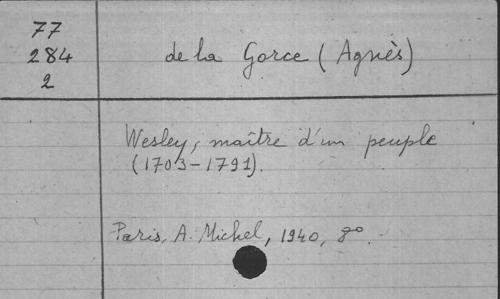 77
284
2
de la Gorce (Agnès)
Wesley, maître d'un peuple
(1703-1791).
Paris, A. Michel, 1940, 8º.-